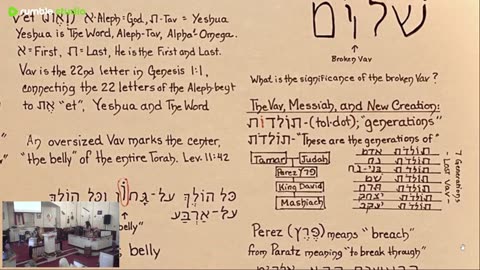 rumble
v'et א Aleph=God, ת-Tav = Yeshua
Yeshua is The Word, Aleph-Tav, Alpha Omega.
א=First, ת=Last, He is the First and Last.
Vav is the 22nd letter in Genesis 1:1,
connecting the 22 letters of the Aleph-beyt
to את "et", Yeshua and The Word
An oversized Vav marks the center,
"the belly" of the entire Torah. Lev. 11:42
כל הולך על-גחון וכל הולך
על-ארבע
belly
שלום
Broken Vav
What is the significance of the broken Vav?
The Vav, Messiah, and New Creation:
תולדות-(tol·dot); "generations"
תולדת-"These are the generations of"
Tamar Judah
Perez פרץ
King David
Mashiach
תולדת אדם
תולדת נח
תולדת בני-נח
תולדת שם
תולדת תרח
תולדת יצחק
תולדת יעקב
7 Generations
- Lost Vav -
Perez (פרץ) means "breach"
from Paratz meaning "to break through"